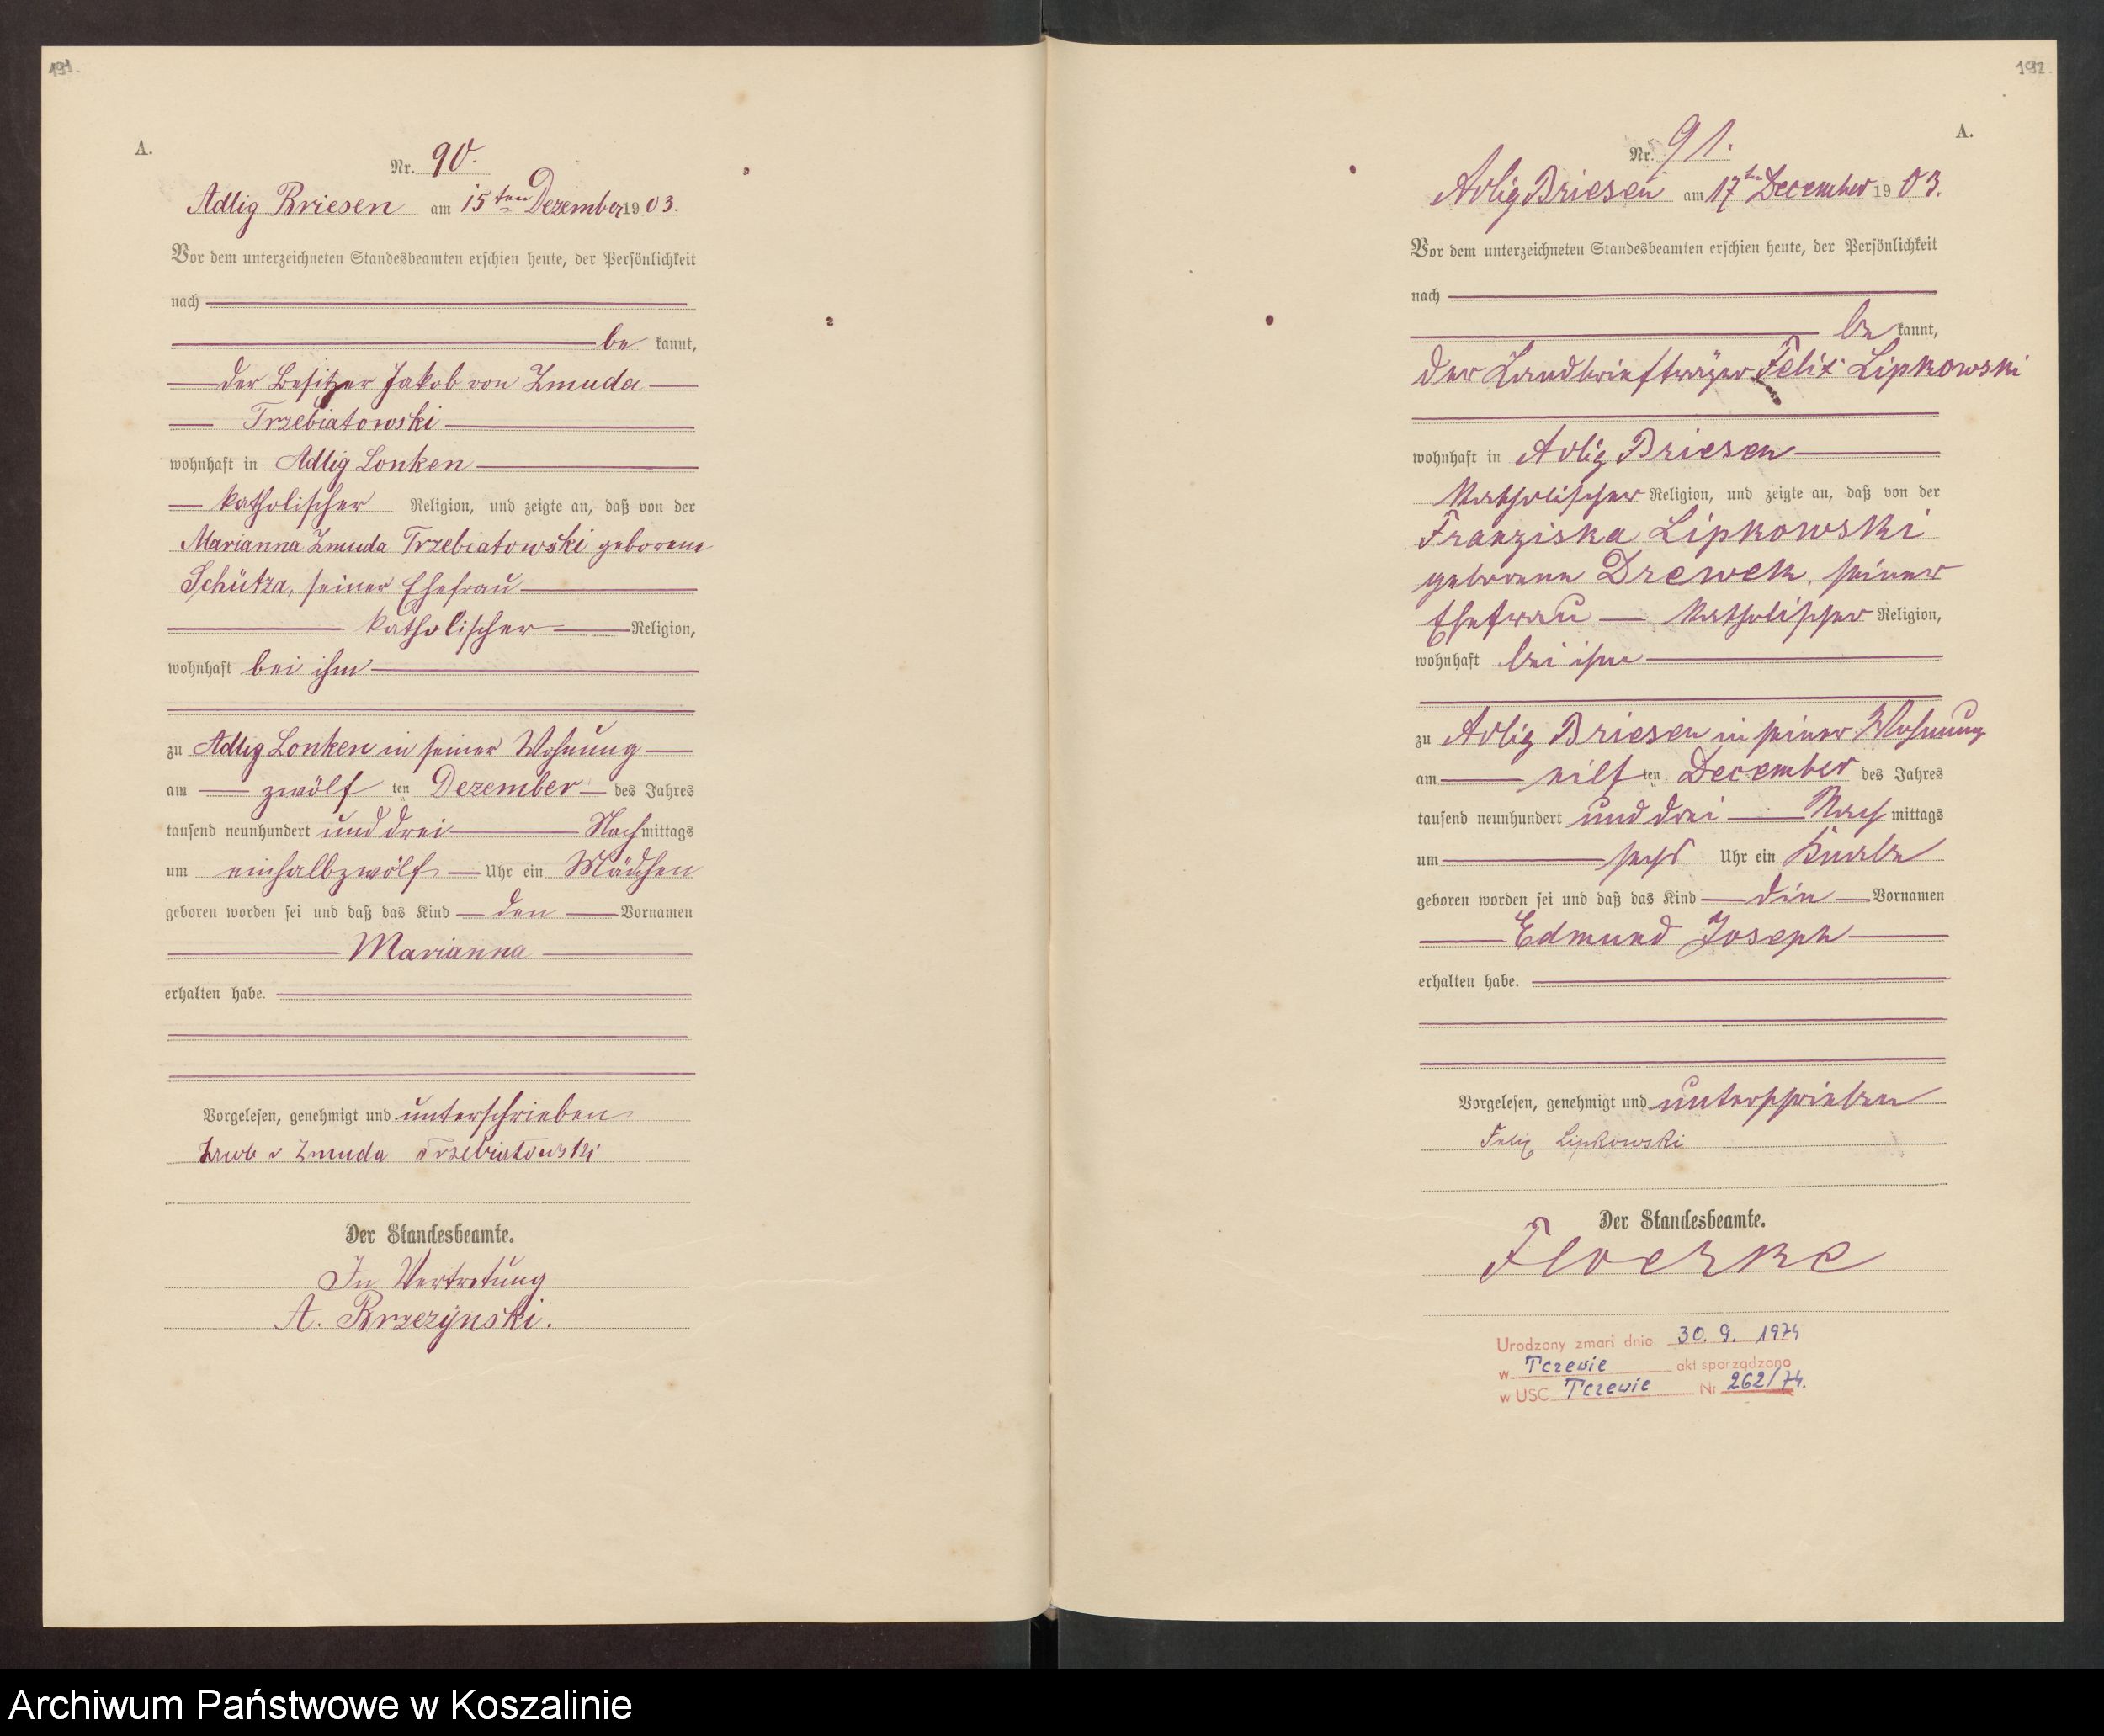 191.
A.
Nr. 90.
Adlig Briesen am 15ten Dezember 1903.
Vor dem unterzeichneten Standesbeamten erschien heute, der Persönlichkeit
nach
be kannt,
der Besitzer Jakob von Zmuda
Trzebiatowski
wohnhaft in Adlig Lonken
katholischer Religion, und zeigte an, daß von der
Marianna Zmuda Trzebiatowski geborene
Schütza, seiner Ehefrau
katholischer Religion,
wohnhaft bei ihm
zu Adlig Lonken in seiner Wohnung
am zwölf ten Dezember des Jahres
tausend neunhundert und drei Nachmittags
um einhalbzwölf Uhr ein Mädchen
geboren worden sei und daß das Kind den Vornamen
Marianna
erhalten habe.
Vorgelesen, genehmigt und unterschrieben
v Zmuda Trzebiatowski
Der Standesbeamte.
In Vertretung
A. Brzezynski.
192.
A.
Nr. 91.
Adlig Briesen am 17ten December 1903.
Vor dem unterzeichneten Standesbeamten erschien heute, der Persönlichkeit
nach
be kannt,
der Landbriefträger Felix Lipkowski
wohnhaft in Adlig Briesen
katholischer Religion, und zeigte an, daß von der
Franziska Lipkowski
geborene Drewek, seiner
Ehefrau katholischer Religion,
wohnhaft bei ihm
zu Adlig Briesen in seiner Wohnung
am eilf ten December des Jahres
tausend neunhundert und drei Nach mittags
um sechs Uhr ein Knabe
geboren worden sei und daß das Kind die Vornamen
Edmund Joseph
erhalten habe.
Vorgelesen, genehmigt und unterschrieben
Felix Lipkowski
Der Standesbeamte.
Floerke
Urodzony zmarł dnia 30. 9. 1974
w Tczewie akt sporządzono
w USC Tczewie Nr 262/74.
Archiwum Państwowe w Koszalinie